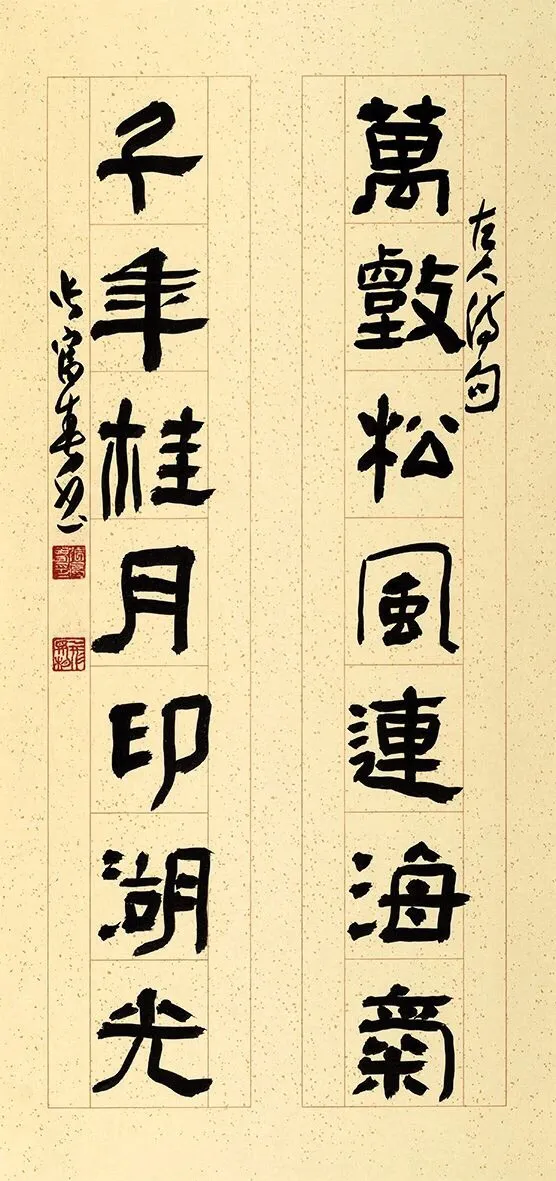 古人诗句
萬壑松風連海氣
千年桂月印湖光